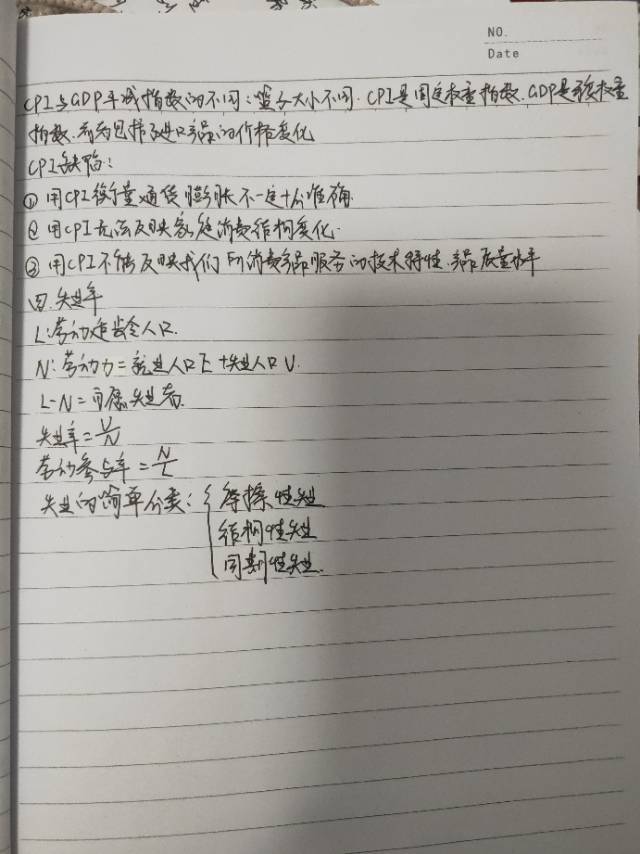 NO.
Date
CPI与GDP平减指数的不同:篮子大小不同.CPI是固定权重指数.GDP是可变权重
指数.前者包括了进口商品的价格变化
CPI缺陷:
① 用CPI衡量通货膨胀不一定十分准确.
② 用CPI无法反映家庭消费结构变化.
③ 用CPI不能反映我们所消费商品服务的技术特性.商品质量水平
四.失业率
L:劳动年龄人口.
N:劳动力=就业人口E+失业人口U.
L-N=自愿失业者.
失业率=U/N
劳动参与率=N/L
失业的简单分类:{摩擦性失业
结构性失业
周期性失业.